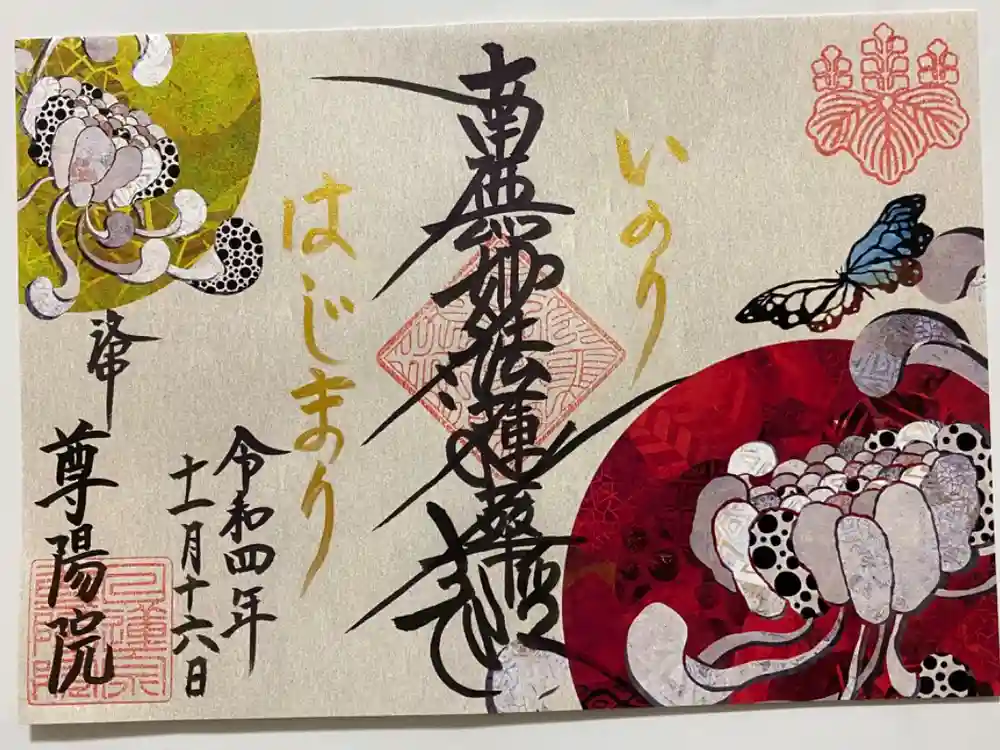 いのり
南無妙法蓮華経
はじまり
令和四年
十一月十六日
洛中
尊陽院